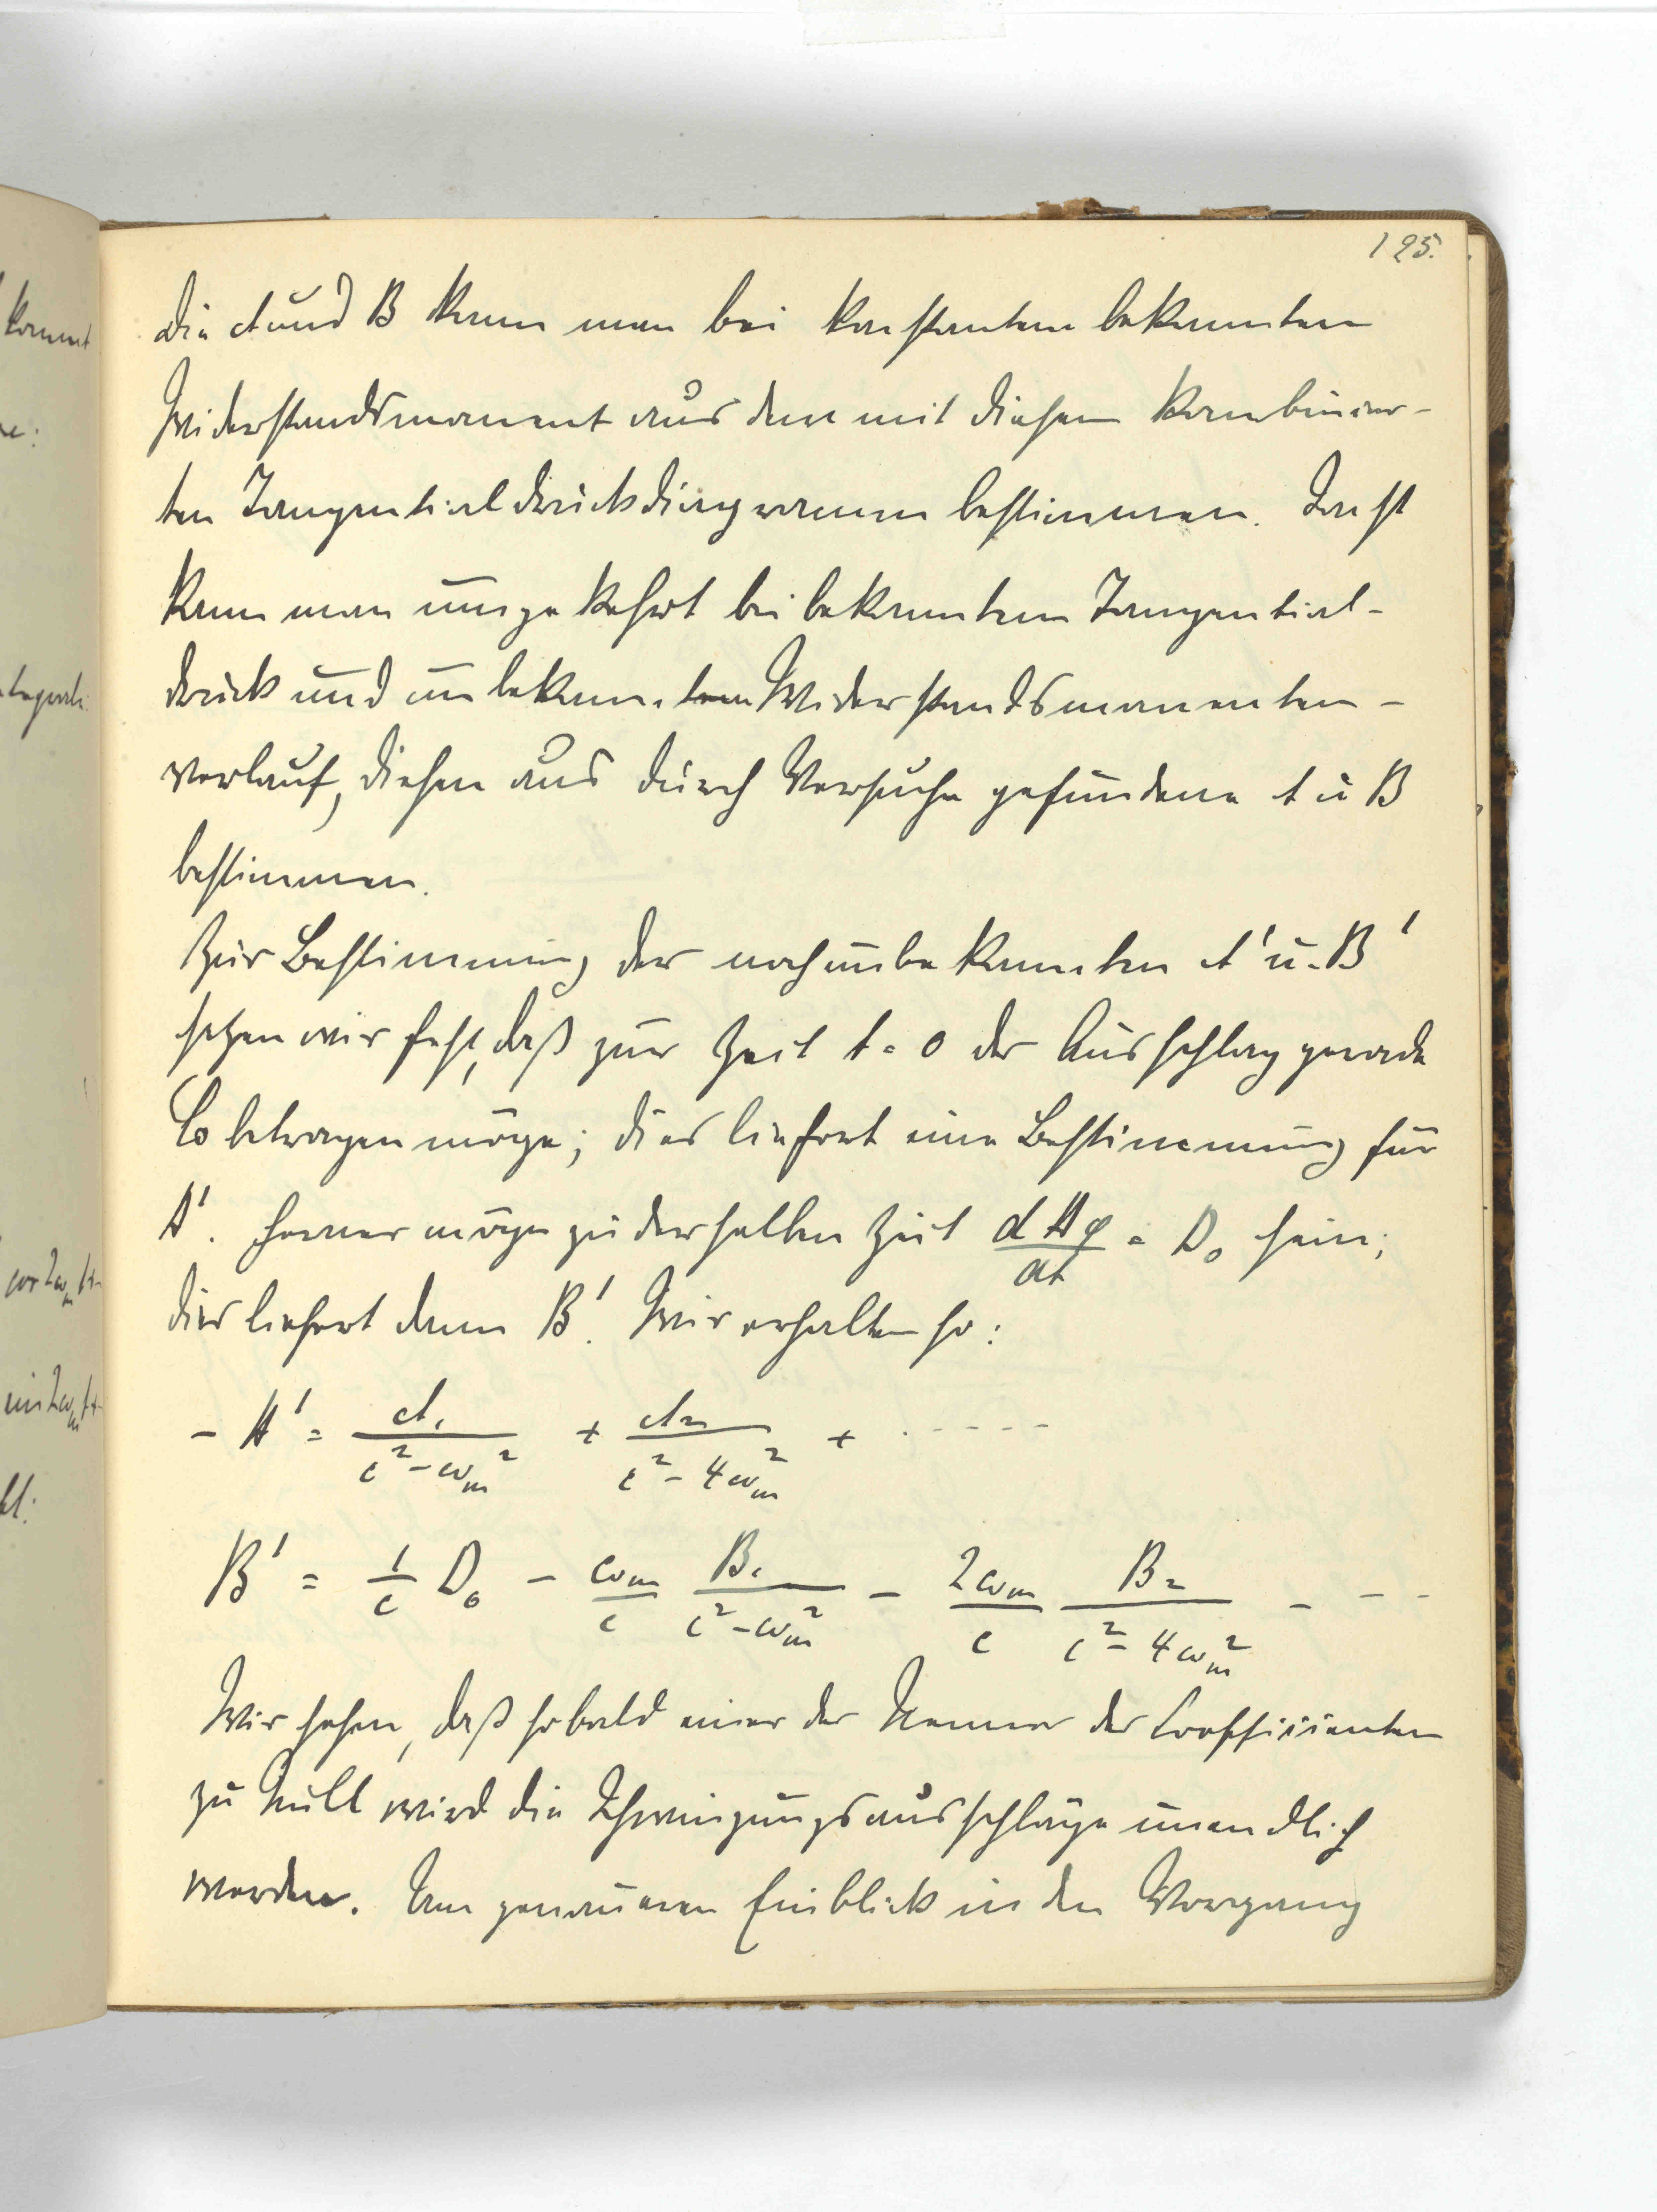 125.
Die A und B kann man bei konstantem bekannten
Widerstandsmoment aus dem mit diesem kombinier-
ten Tangentialdruckdiagramm bestimmen. Sonst
kann man umgekehrt bei bekanntem Tangential-
druck und unbekanntem Widerstandsmomenten-
verlauf, diesen aus durch Versuche gefundene A u B
bestimmen.
Zur Bestimmung der noch unbekannten A' u. B'
setzen wir fest, daß zur Zeit t = 0 der Ausschlag gerade
betragen möge; dies liefert eine Bestimmung für
A'. Ferner möge zu derselben Zeit d Δφ / dt = D₀ sein;
dies liefert dann B'. Wir erhalten so:
- A' = A₁ / (c² - ω_m²) + A₂ / (c² - 4ω_m²) + . - - - -
B' = 1/c D₀ - ω_m/c B₁ / (c² - ω_m²) - 2ω_m/c B₂ / (c² - 4ω_m²) - - -
Wir sehen, daß sobald einer der Nenner der Coeffizienten
zu Null wird die Schwingungsausschläge unendlich
werden. Um genaueren Einblick in den Vorgang
kommt